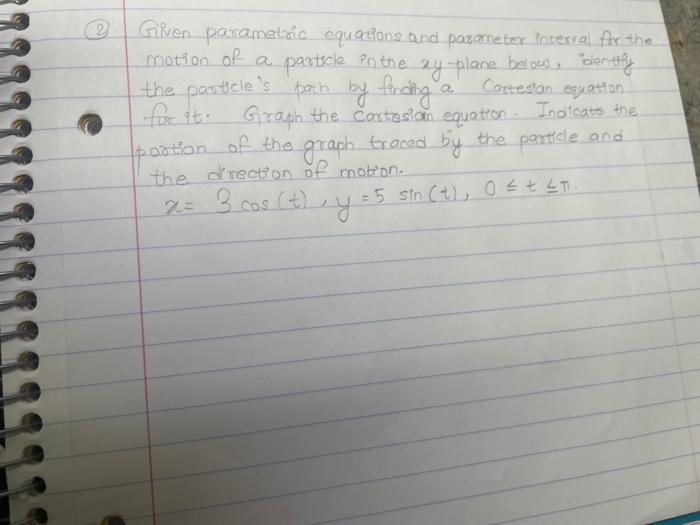 ② Given parametric equations and parameter interval for the
motion of a particle in the xy-plane below, identify
the particle's path by finding a Cartesian equation
for it. Graph the Cartesian equation. Indicate the
portion of the graph traced by the particle and
the direction of motion.
x = 3 cos(t), y = 5 sin(t), 0 ≤ t ≤ π.